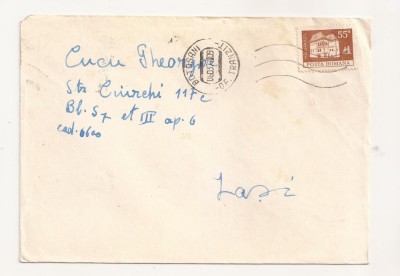 Cucu Gheorghe
Str Ciurchi 117c
Bl. S7 et III ap. 6
cod. 6600
Iași
BOTOȘANI
TRANZIT
55
POSTA ROMANA